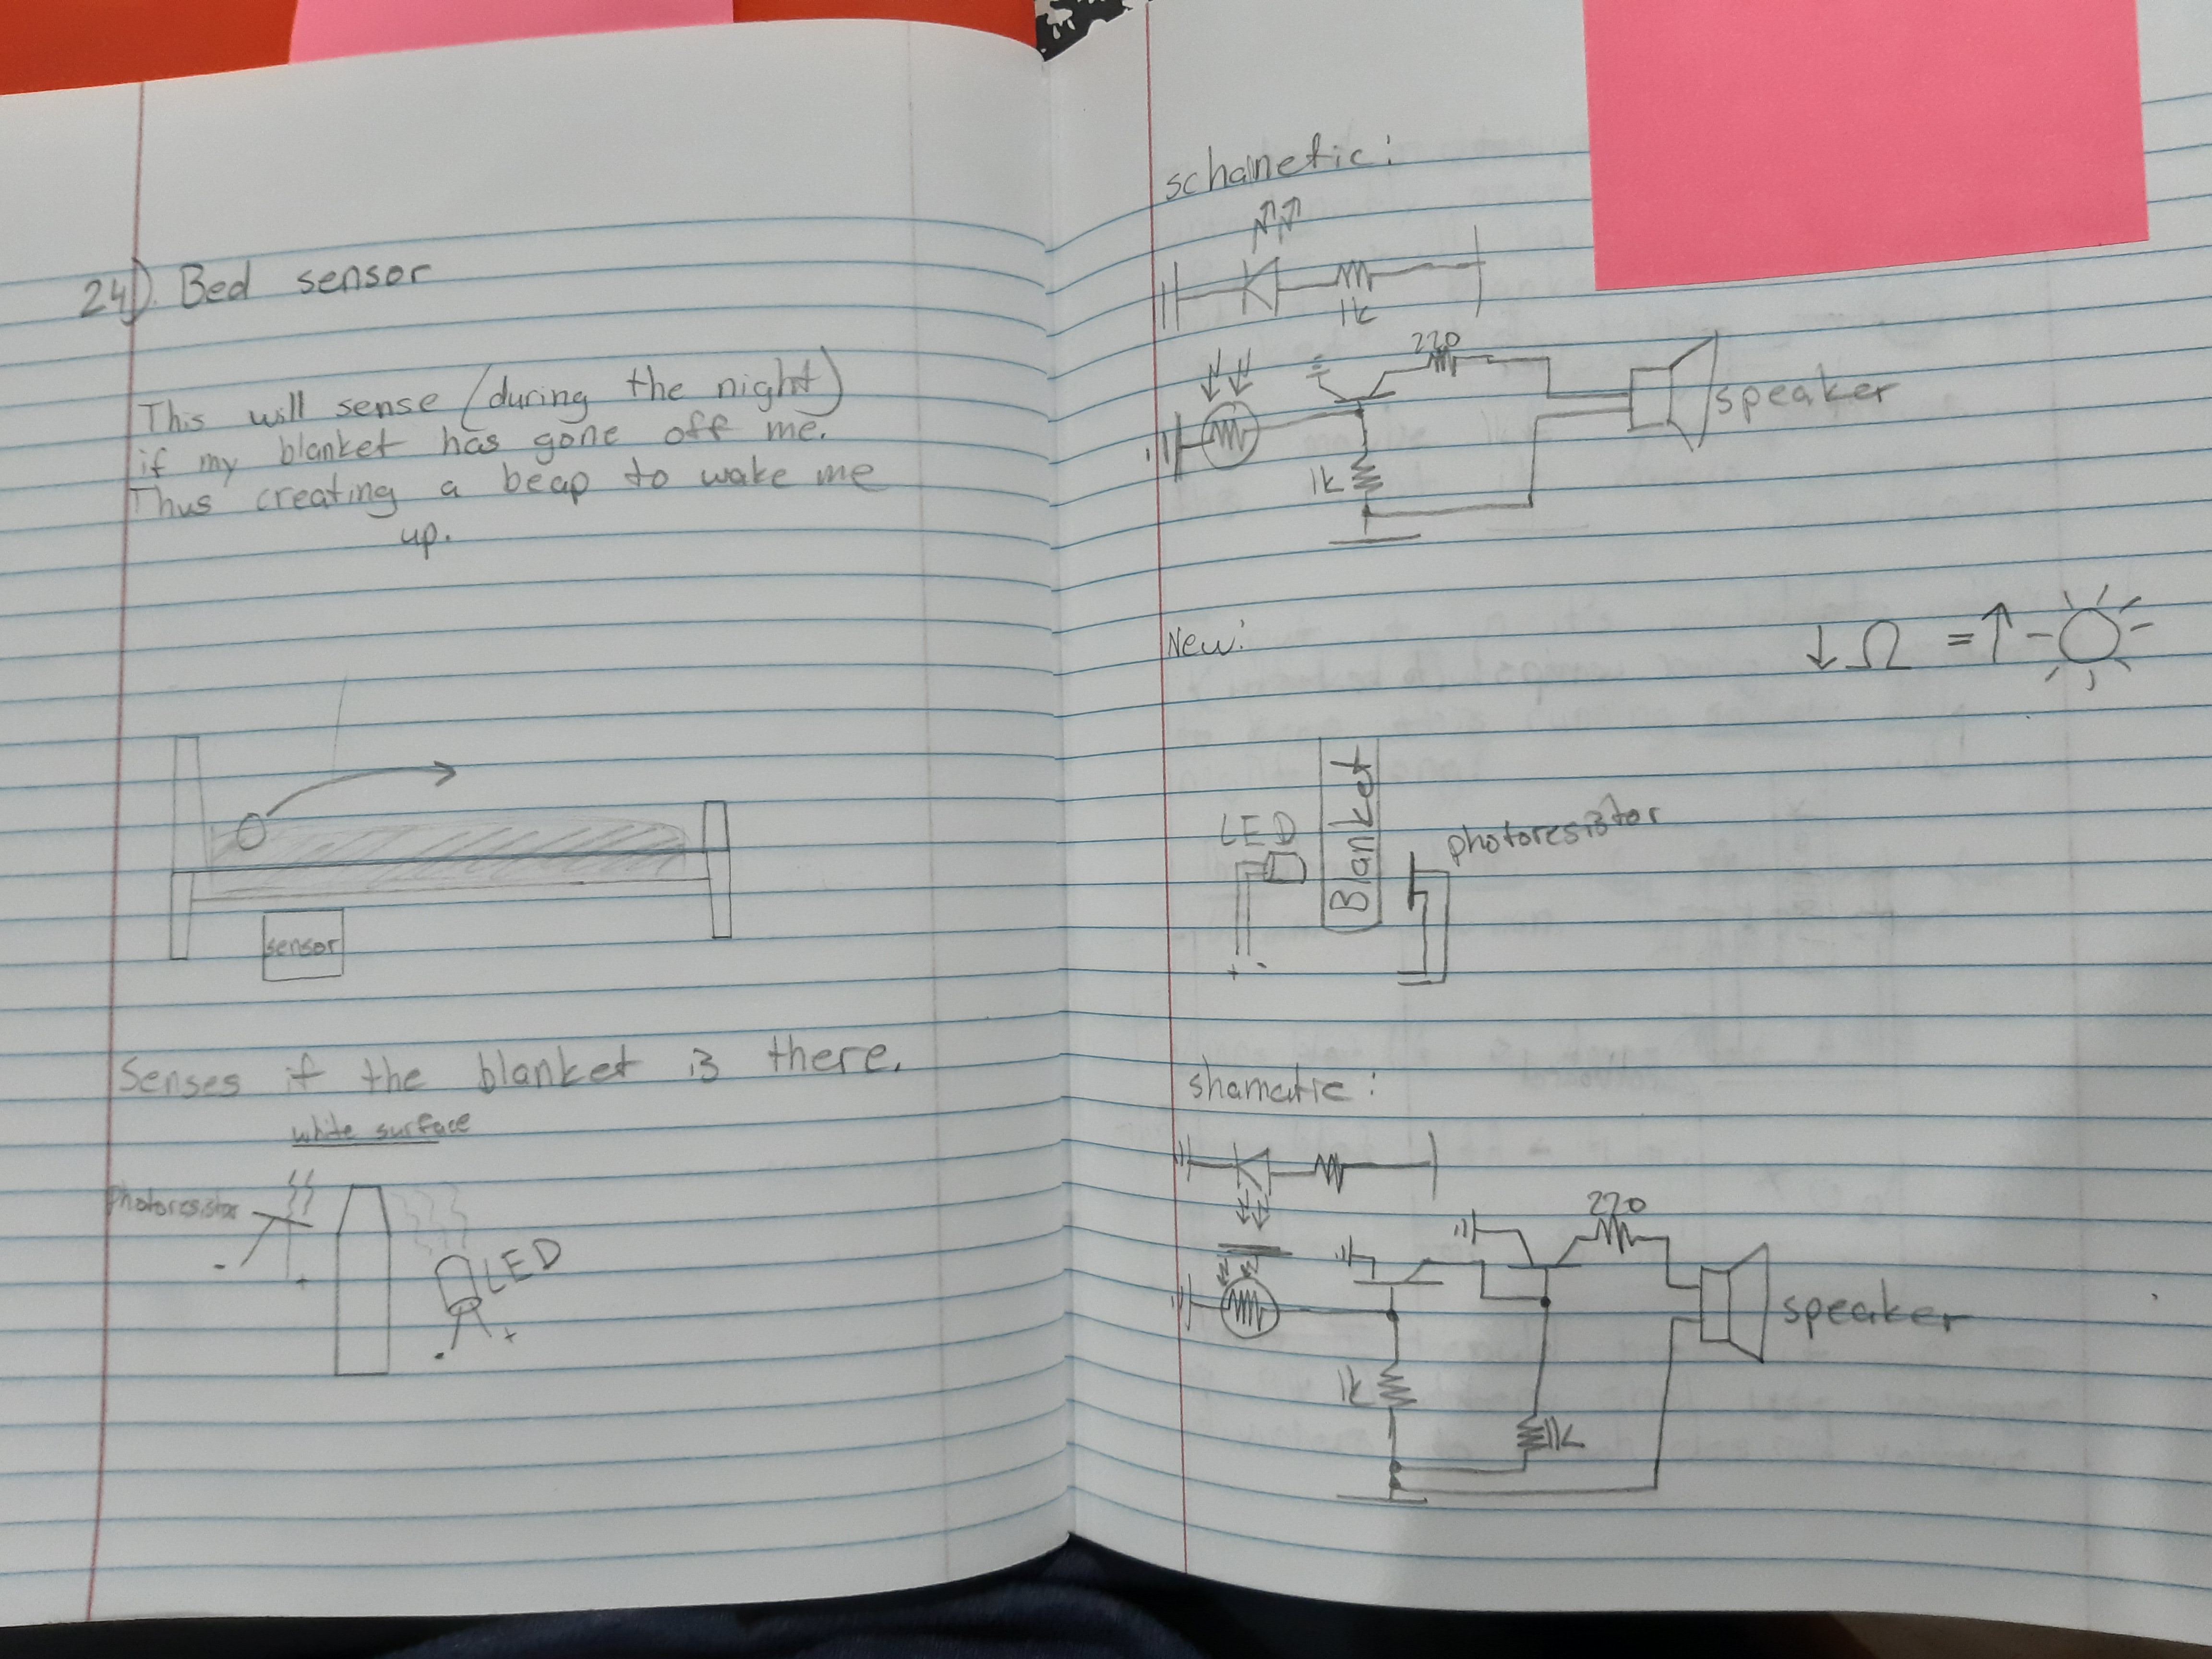 24). Bed sensor
This will sense (during the night)
if my blanket has gone off me.
Thus creating a beap to wake me
up.
sensor
Senses if the blanket is there.
white surface
Photoresistor
-
+
LED
- +
schametic:
1k
220
speaker
1k
New:
↓ Ω = ↑
LED
Blanket
photoresistor
+ -
shamatic:
220
speaker
1k
1k